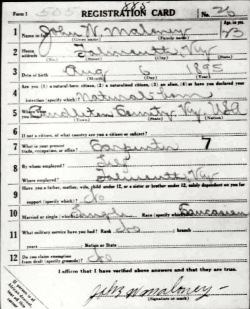 Form 1 505 REGISTRATION CARD No. 26
1 Name in full John W Maloney Age, in yrs. 23
(Given name) (Family name)
2 Home address Ky
3 Date of birth Aug 6 1893
(Month) (Day) (Year)
4 Are you (1) a natural-born citizen, (2) a naturalized citizen, (3) an alien, (4) or have you declared your
intention (specify which)?
5 Where were you born? Ky USA
6 If not a citizen, of what country are you a citizen or subject?
7 What is your present trade, occupation, or office? Carpenter 7
8 By whom employed?
Where employed? Ky
9 Have you a father, mother, wife, child under 12, or a sister or brother under 12, solely dependent on you for
support (specify which)? No
10 Married or single (which)? Single Race (specify which)? Caucasian
11 What military service have you had? Rank No branch
years Nation or State
12 Do you claim exemption from draft (specify grounds)? No
I affirm that I have verified above answers and that they are true.
John W Maloney
(Signature or mark)